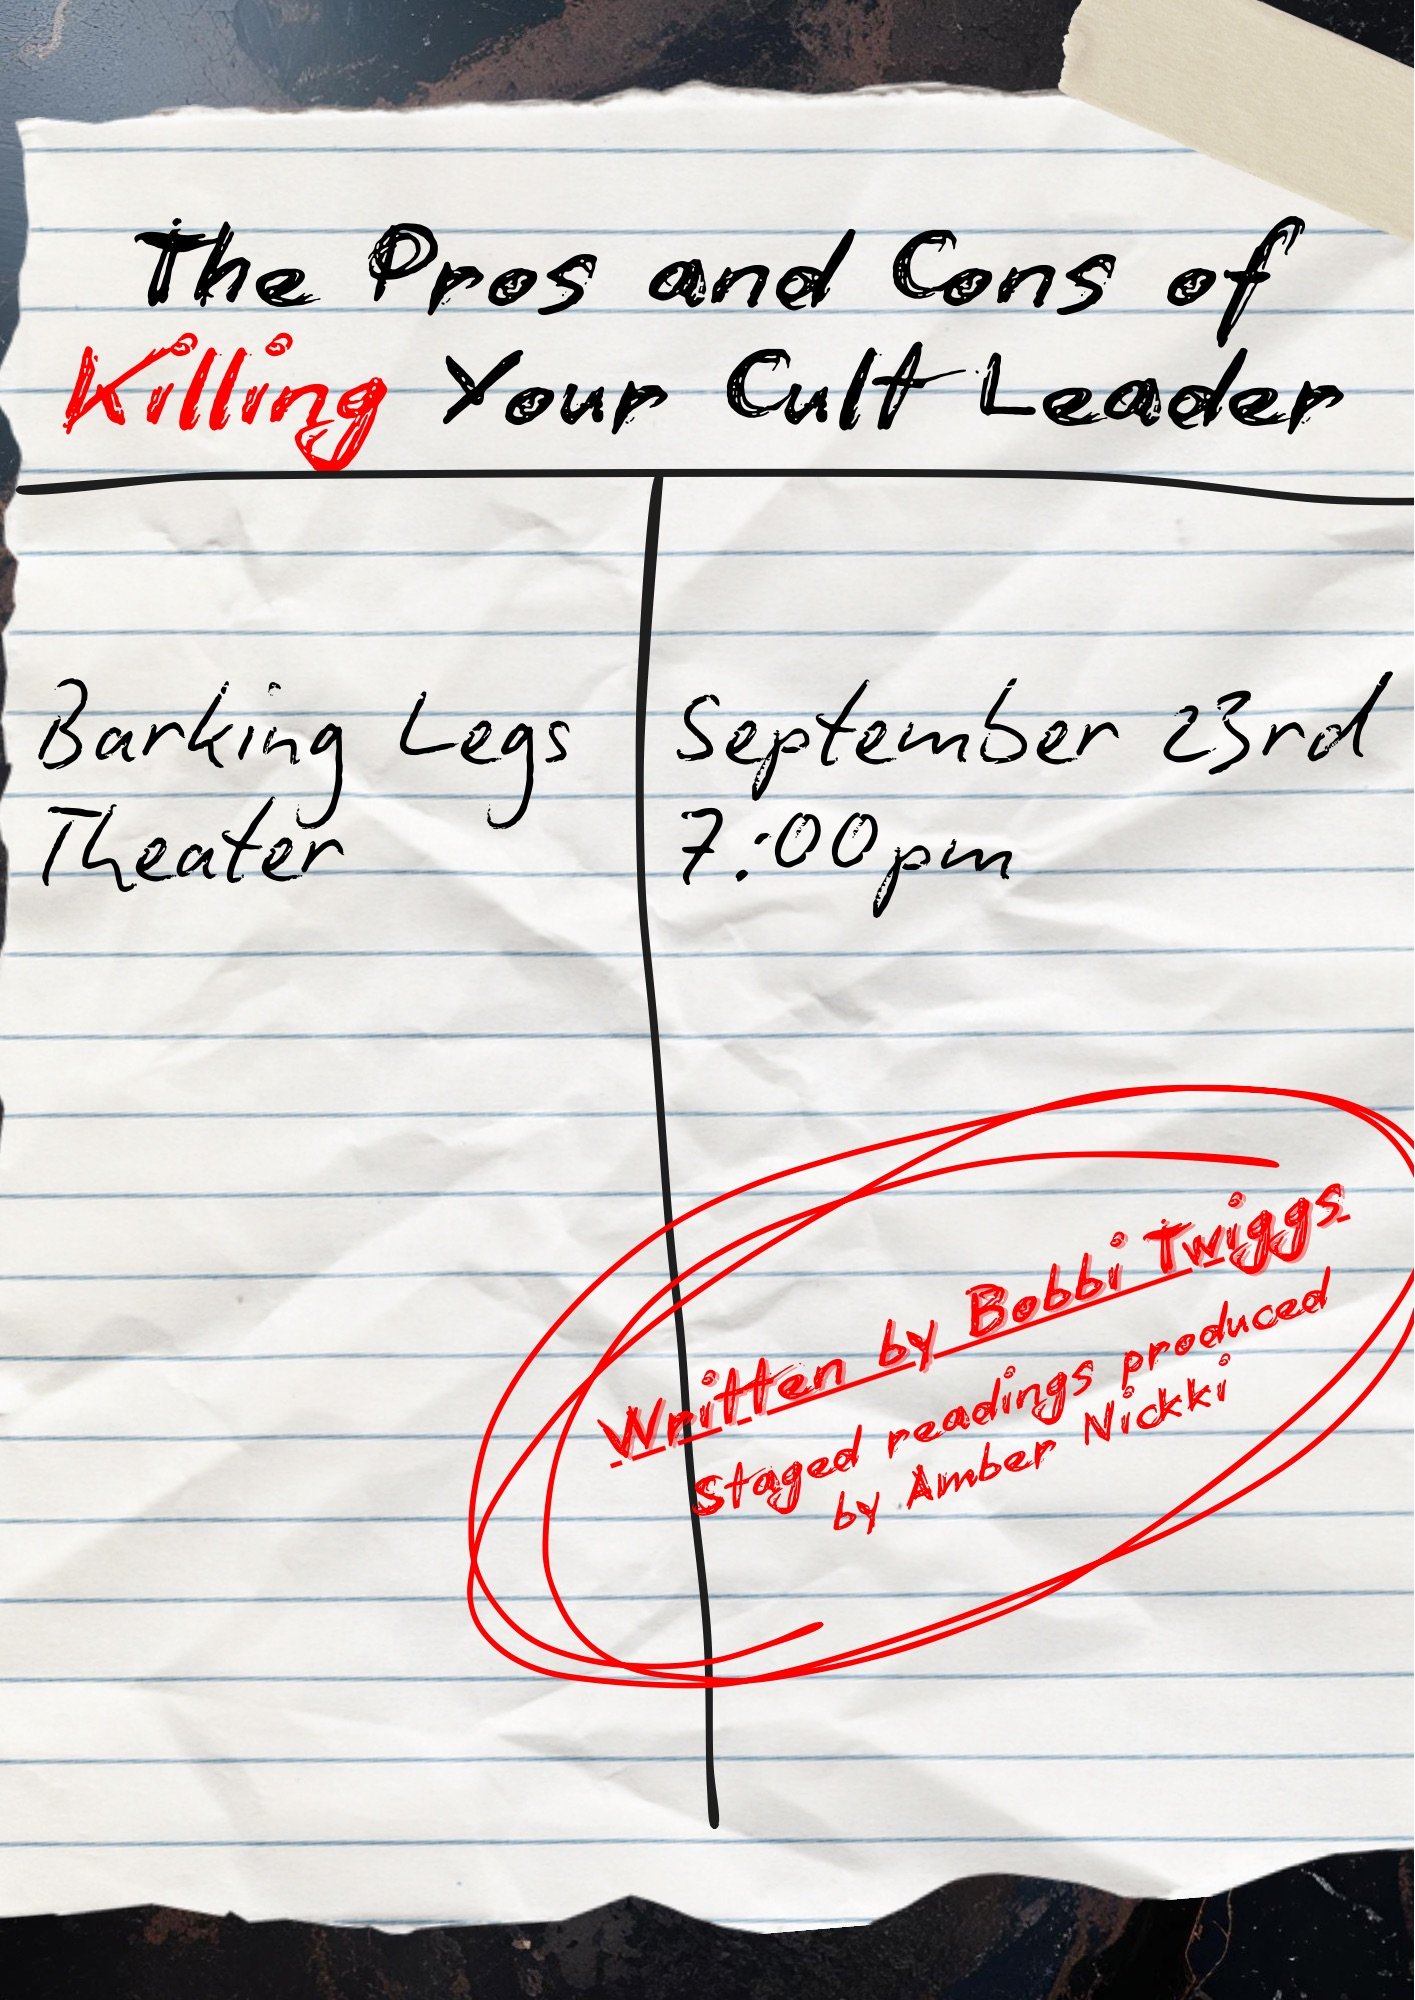 The Pros and Cons of
Killing Your Cult Leader
Barking Legs
Theater
September 23rd
7:00pm
Written by Bobbi Twiggs
Staged readings produced
by Amber Nickki